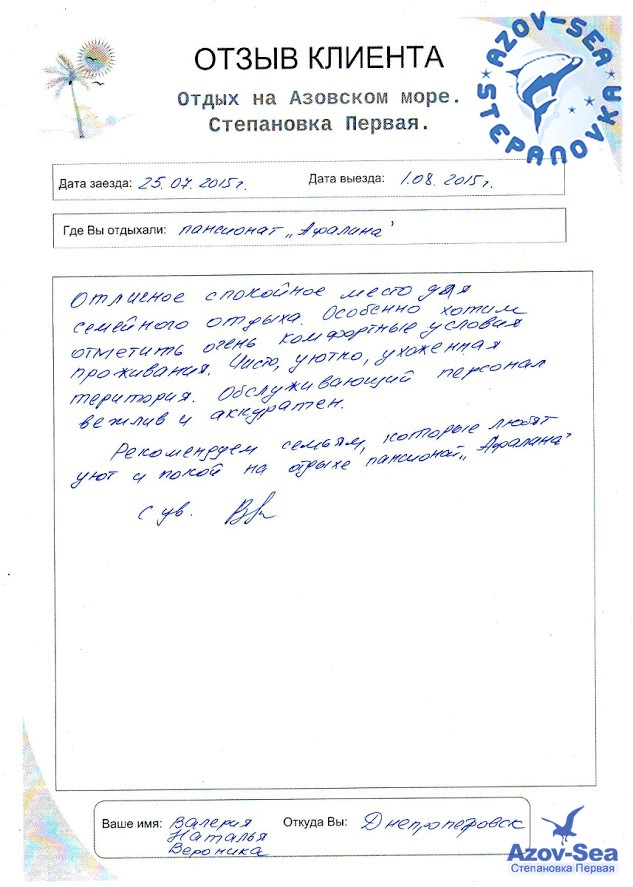 ОТЗЫВ КЛИЕНТА
AZOV-SEA
STEPANOVKA
Отдых на Азовском море.
Степановка Первая.
Дата заезда: 25.07.2015г. Дата выезда: 1.08.2015г.
Где Вы отдыхали: пансионат „Афалина”
Отличное спокойное место для
семейного отдыха. Особенно хотим
отметить очень комфортные условия
проживания. Чисто, уютно, ухоженная
територия. Обслуживающий персонал
вежлив и аккуратен.
Рекомендуем семьям, которые любят
уют и покой на отдыхе пансионат „Афалина”
С ув.
Ваше имя: Валерия Откуда Вы: Днепропетровск
Наталья
Вероника
Azov-Sea
Степановка Первая